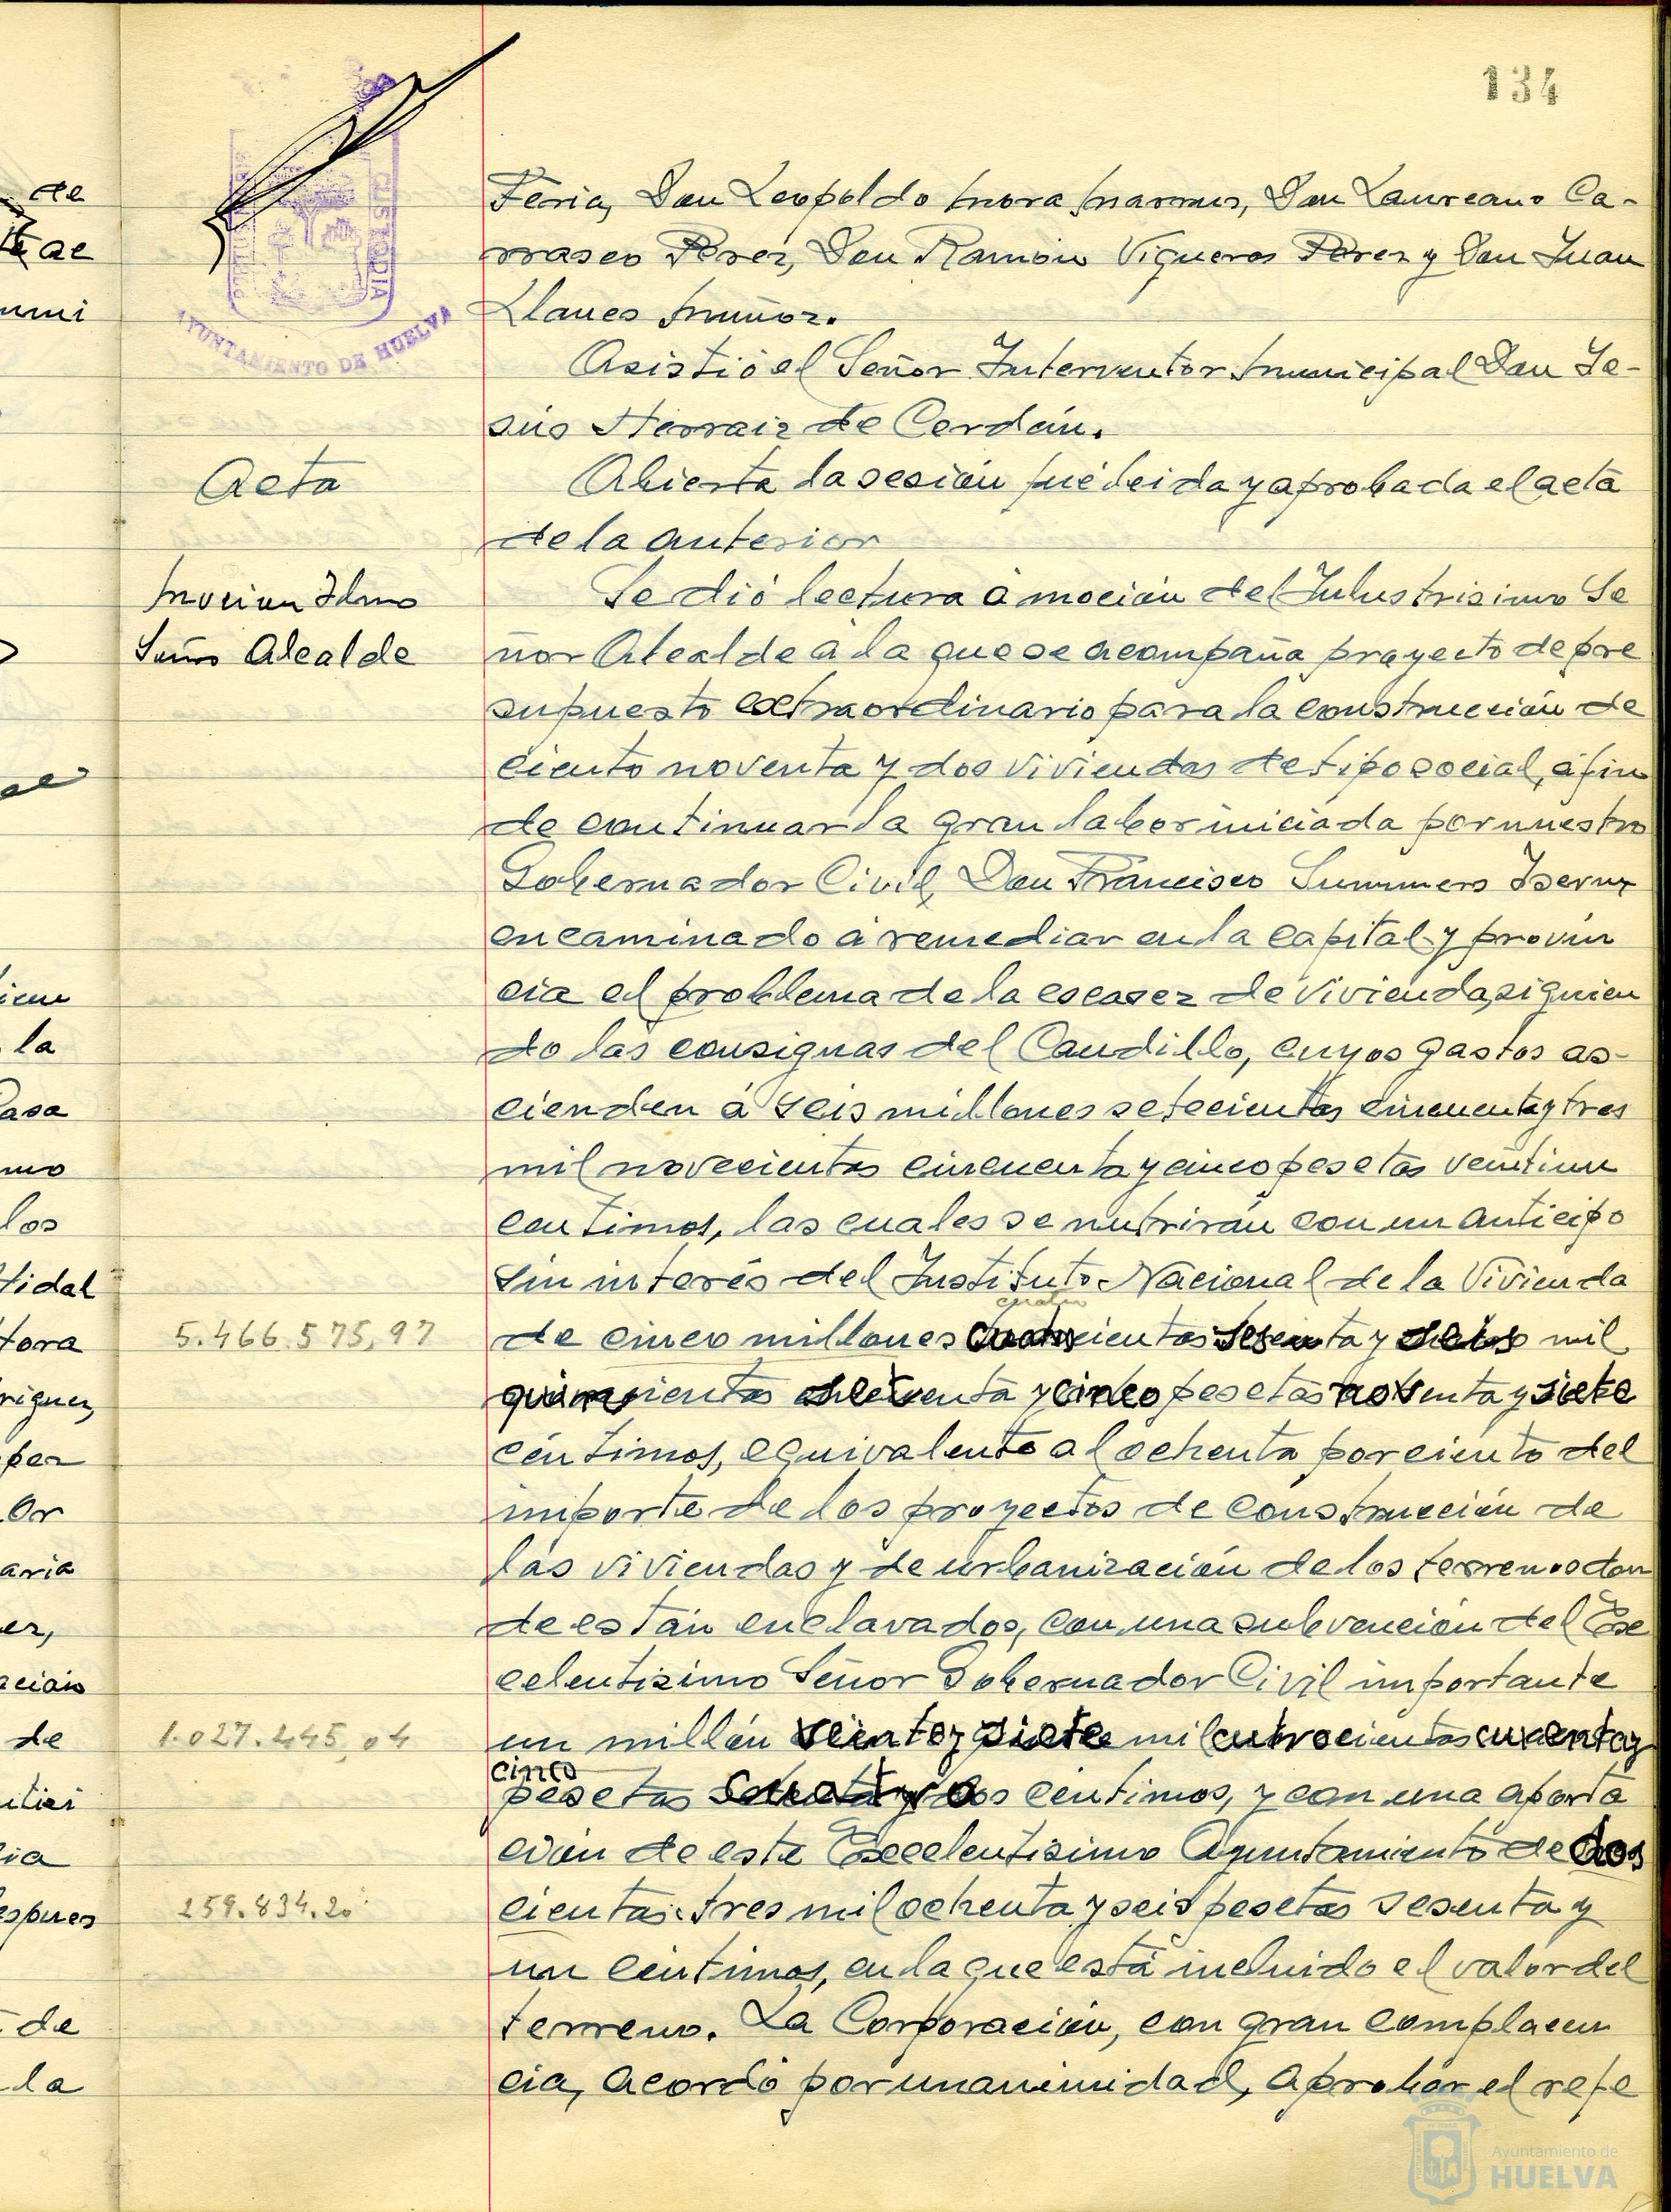 134
Feria, Don Leopoldo Mora Marmes, Don Laureano Ca-
rrasco Perez, Don Ramón Vigueras Perez y Don Juan
Llanes Muñoz.
Asistió el Señor Interventor Municipal Don Je-
sús Herraiz de Cerdán.
Acta
Abierta la sesión fué leida y aprobada el acta
de la anterior
Moción Ilmo
Señor Alcalde
Se dió lectura á moción del Ilustrisimo Se
ñor Alcalde á la que se acompaña proyecto de pre
supuesto extraordinario para la construcción de
ciento noventa y dos viviendas de tipo social, á fin
de continuar la gran labor iniciada por nuestro
Gobernador Civil, Don Francisco Summers Isern
encaminado á remediar en la capital y provin
cia el problema de la escasez de vivienda, siguien
do las consignas del Caudillo, cuyos gastos as-
cienden á seis millones setecientas cincuenta y tres
mil novecientas cincuenta y cinco pesetas veintiun
centimos, las cuales se nutrirán con un anticipo
sin interés del Instituto Nacional de la Vivienda
cuatro
5.466.575,97
de cinco millones cuatrocientas sesenta y seis mil
quinientas setenta y cinco pesetas noventa y siete
céntimos, equivalente al ochenta por ciento del
importe de los proyectos de construcción de
las viviendas y de urbanización de los terrenos don
de están enclavados, con una subvención del Exc
celentisimo Señor Gobernador Civil importante
1.027.445,04
un millón veinte y siete mil cutrocientas cuarenta y
cinco
pesetas cuatro centimos, y con una aporta
ción de este Excelentisimo Ayuntamiento de dos
259.834.20
cientas tres mil ochenta y seis pesetas sesenta y
un céntimos, en la que está incluido el valor del
terreno. La Corporación, con gran complacen
cia, acordó por unanimidad, aprobar el refe
AYUNTAMIENTO DE HUELVA
CUSTODIA
de
ummi
la
Casa
los
Vidal
tora
riguez,
Or
aria
er,
de
cia
espues
de
la
Ayuntamiento de
HUELVA